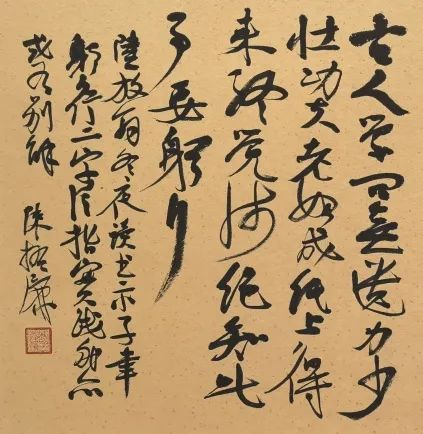 古人学问无遗力少
壮功夫老始成纸上得
来终觉浅绝知此
事要躬行
陆放翁冬夜读书示子聿
躬行二字指实践亦
或有别解 陈振濂